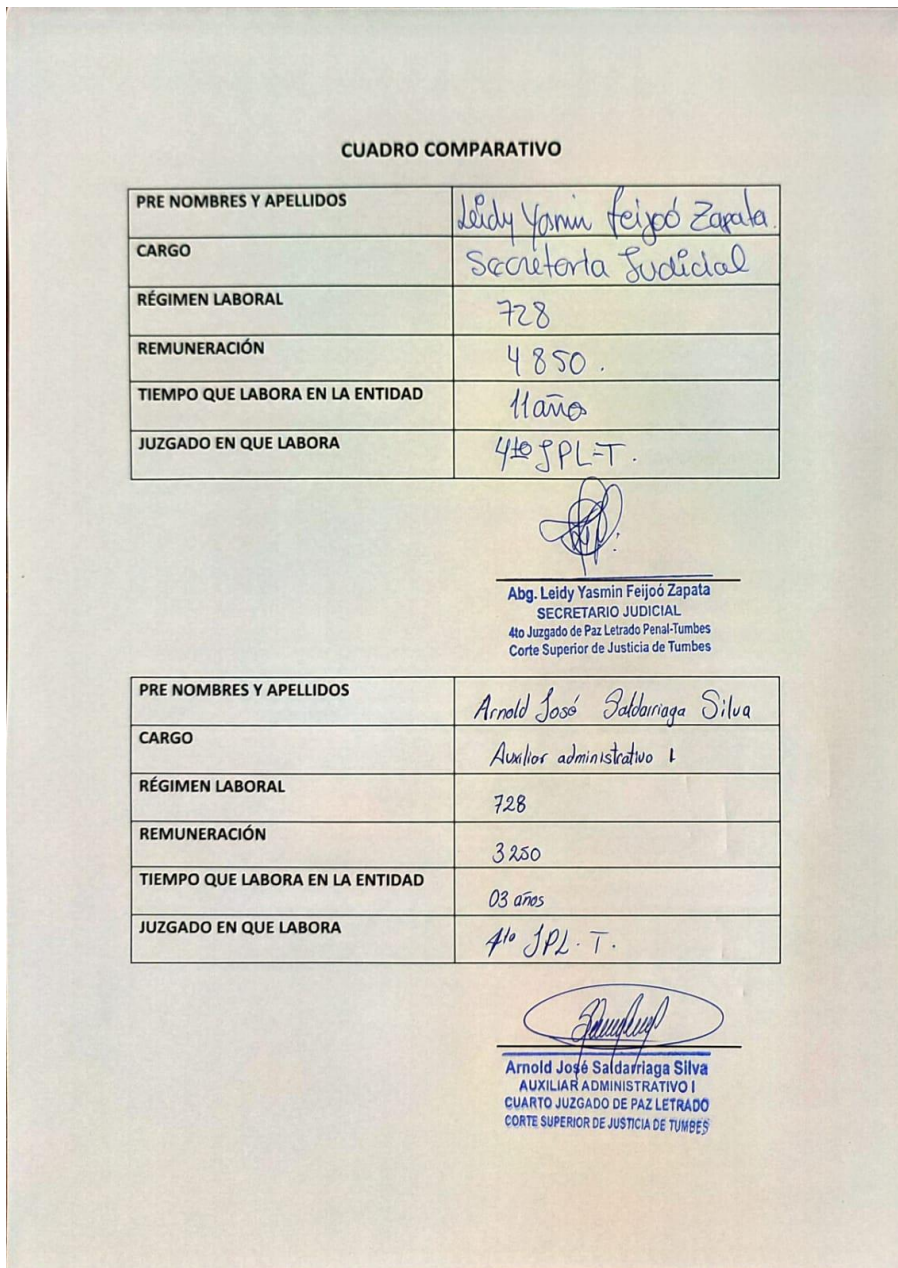 CUADRO COMPARATIVO
PRE NOMBRES Y APELLIDOS Leidy Yasmin Feijoó Zapata.
CARGO Secretaria Judicial
RÉGIMEN LABORAL 728
REMUNERACIÓN 4850.
TIEMPO QUE LABORA EN LA ENTIDAD 11 años
JUZGADO EN QUE LABORA 4to JPL-T.
Abg. Leidy Yasmin Feijoó Zapata
SECRETARIO JUDICIAL
4to Juzgado de Paz Letrado Penal-Tumbes
Corte Superior de Justicia de Tumbes
PRE NOMBRES Y APELLIDOS Arnold José Saldarriaga Silva
CARGO Auxiliar administrativo I
RÉGIMEN LABORAL 728
REMUNERACIÓN 3250
TIEMPO QUE LABORA EN LA ENTIDAD 03 años
JUZGADO EN QUE LABORA 4to JPL.T.
Arnold José Saldarriaga Silva
AUXILIAR ADMINISTRATIVO I
CUARTO JUZGADO DE PAZ LETRADO
CORTE SUPERIOR DE JUSTICIA DE TUMBES